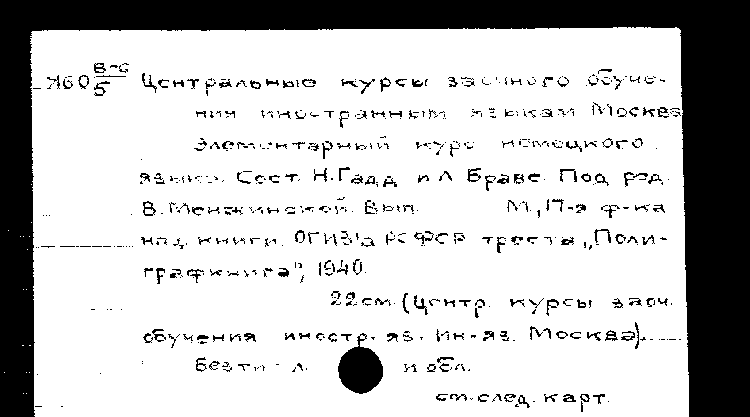 Я60 В-6/5 Центральные курсы заочного обуче-
ния иностранным языкам Москва
Элементарный курс немецкого
языка. Сост. Н. Гадд и Л Браве. Под ред.
В. Менжинской. Вып. М., 17-я ф-ка
нац книги. ОГИЗ'а РСФСР треста „Поли-
графкнига", 1940.
22см. (Центр. курсы заоч.
обучения иностр. яз. Ин-яз. Москва).
Без тит л. и обл.
см. след. карт.